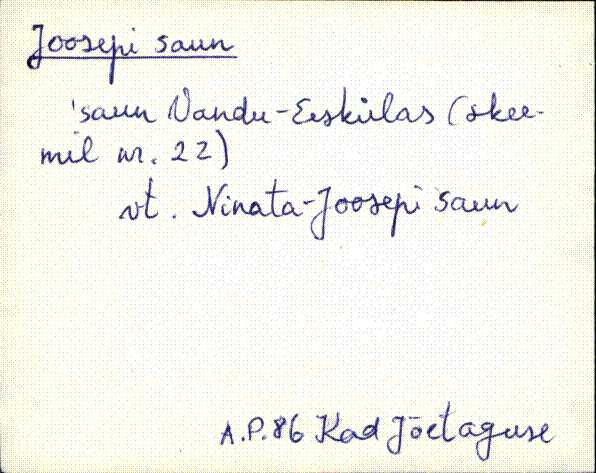 Joosepi saun
'saun Vandu-Eeskülas (skee-
mil nr. 22)
vt. Ninata-Joosepi saun
A.P.86 Kad Jõetaguse